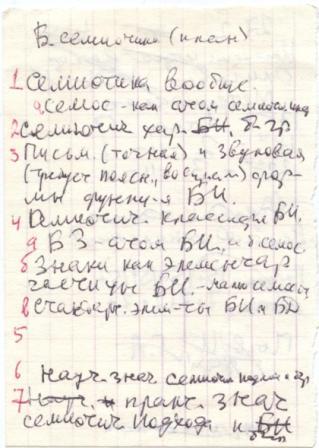 Б. семиотика (план)
1 Семиотика вообще.
а, семос - как атом семиосис
2 семиотич. хар. БИ, б-гр
3 Письм. (точная) и звуковая
(требует поясн., вобщем) фор-
мы функц-я БИ.
4 Семиотич. классифик БИ.
а БЗ - атом БИ, и б. семос
б Знаки как элемента
частицы БИ.
в стандарт. элем-ты БИ и БД
5
6 науч. знач семиотич подхода
7 науч. и практ. знач
семиотич подхода к БИ